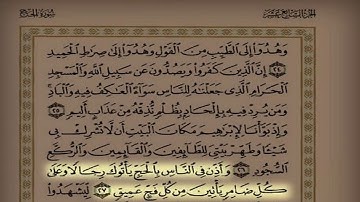 سورة الحج
الجزء السابع عشر
وَهُدُوٓا۟ إِلَى ٱلطَّيِّبِ مِنَ ٱلْقَوْلِ وَهُدُوٓا۟ إِلَىٰ صِرَٰطِ ٱلْحَمِيدِ
٢٤ إِنَّ ٱلَّذِينَ كَفَرُوا۟ وَيَصُدُّونَ عَن سَبِيلِ ٱللَّهِ وَٱلْمَسْجِدِ
ٱلْحَرَامِ ٱلَّذِى جَعَلْنَٰهُ لِلنَّاسِ سَوَآءً ٱلْعَٰكِفُ فِيهِ وَٱلْبَادِ
وَمَن يُرِدْ فِيهِ بِإِلْحَادٍۭ بِظُلْمٍ نُّذِقْهُ مِنْ عَذَابٍ أَلِيمٍ ٢٥
وَإِذْ بَوَّأْنَا لِإِبْرَٰهِيمَ مَكَانَ ٱلْبَيْتِ أَن لَّا تُشْرِكْ بِى
شَيْـًٔا وَطَهِّرْ بَيْتِىَ لِلطَّآئِفِينَ وَٱلْقَآئِمِينَ وَٱلرُّكَّعِ
ٱلسُّجُودِ ٢٦ وَأَذِّن فِى ٱلنَّاسِ بِٱلْحَجِّ يَأْتُوكَ رِجَالًا وَعَلَىٰ
كُلِّ ضَامِرٍ يَأْتِينَ مِن كُلِّ فَجٍّ عَمِيقٍ ٢٧ لِّيَشْهَدُوا۟